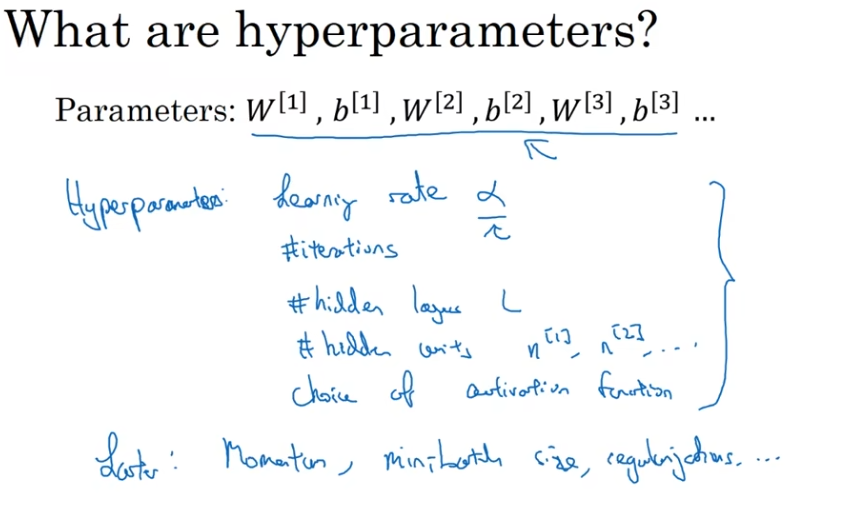 What are hyperparameters?
Parameters: W[1] , b[1] , W[2] , b[2] , W[3] , b[3] ...
Hyperparameters: Learning rate α
#iterations
#hidden layers L
# hidden units n[1], n[2], ....
choice of activation function
Later: Momentum, mini-batch size, regularizations, ...